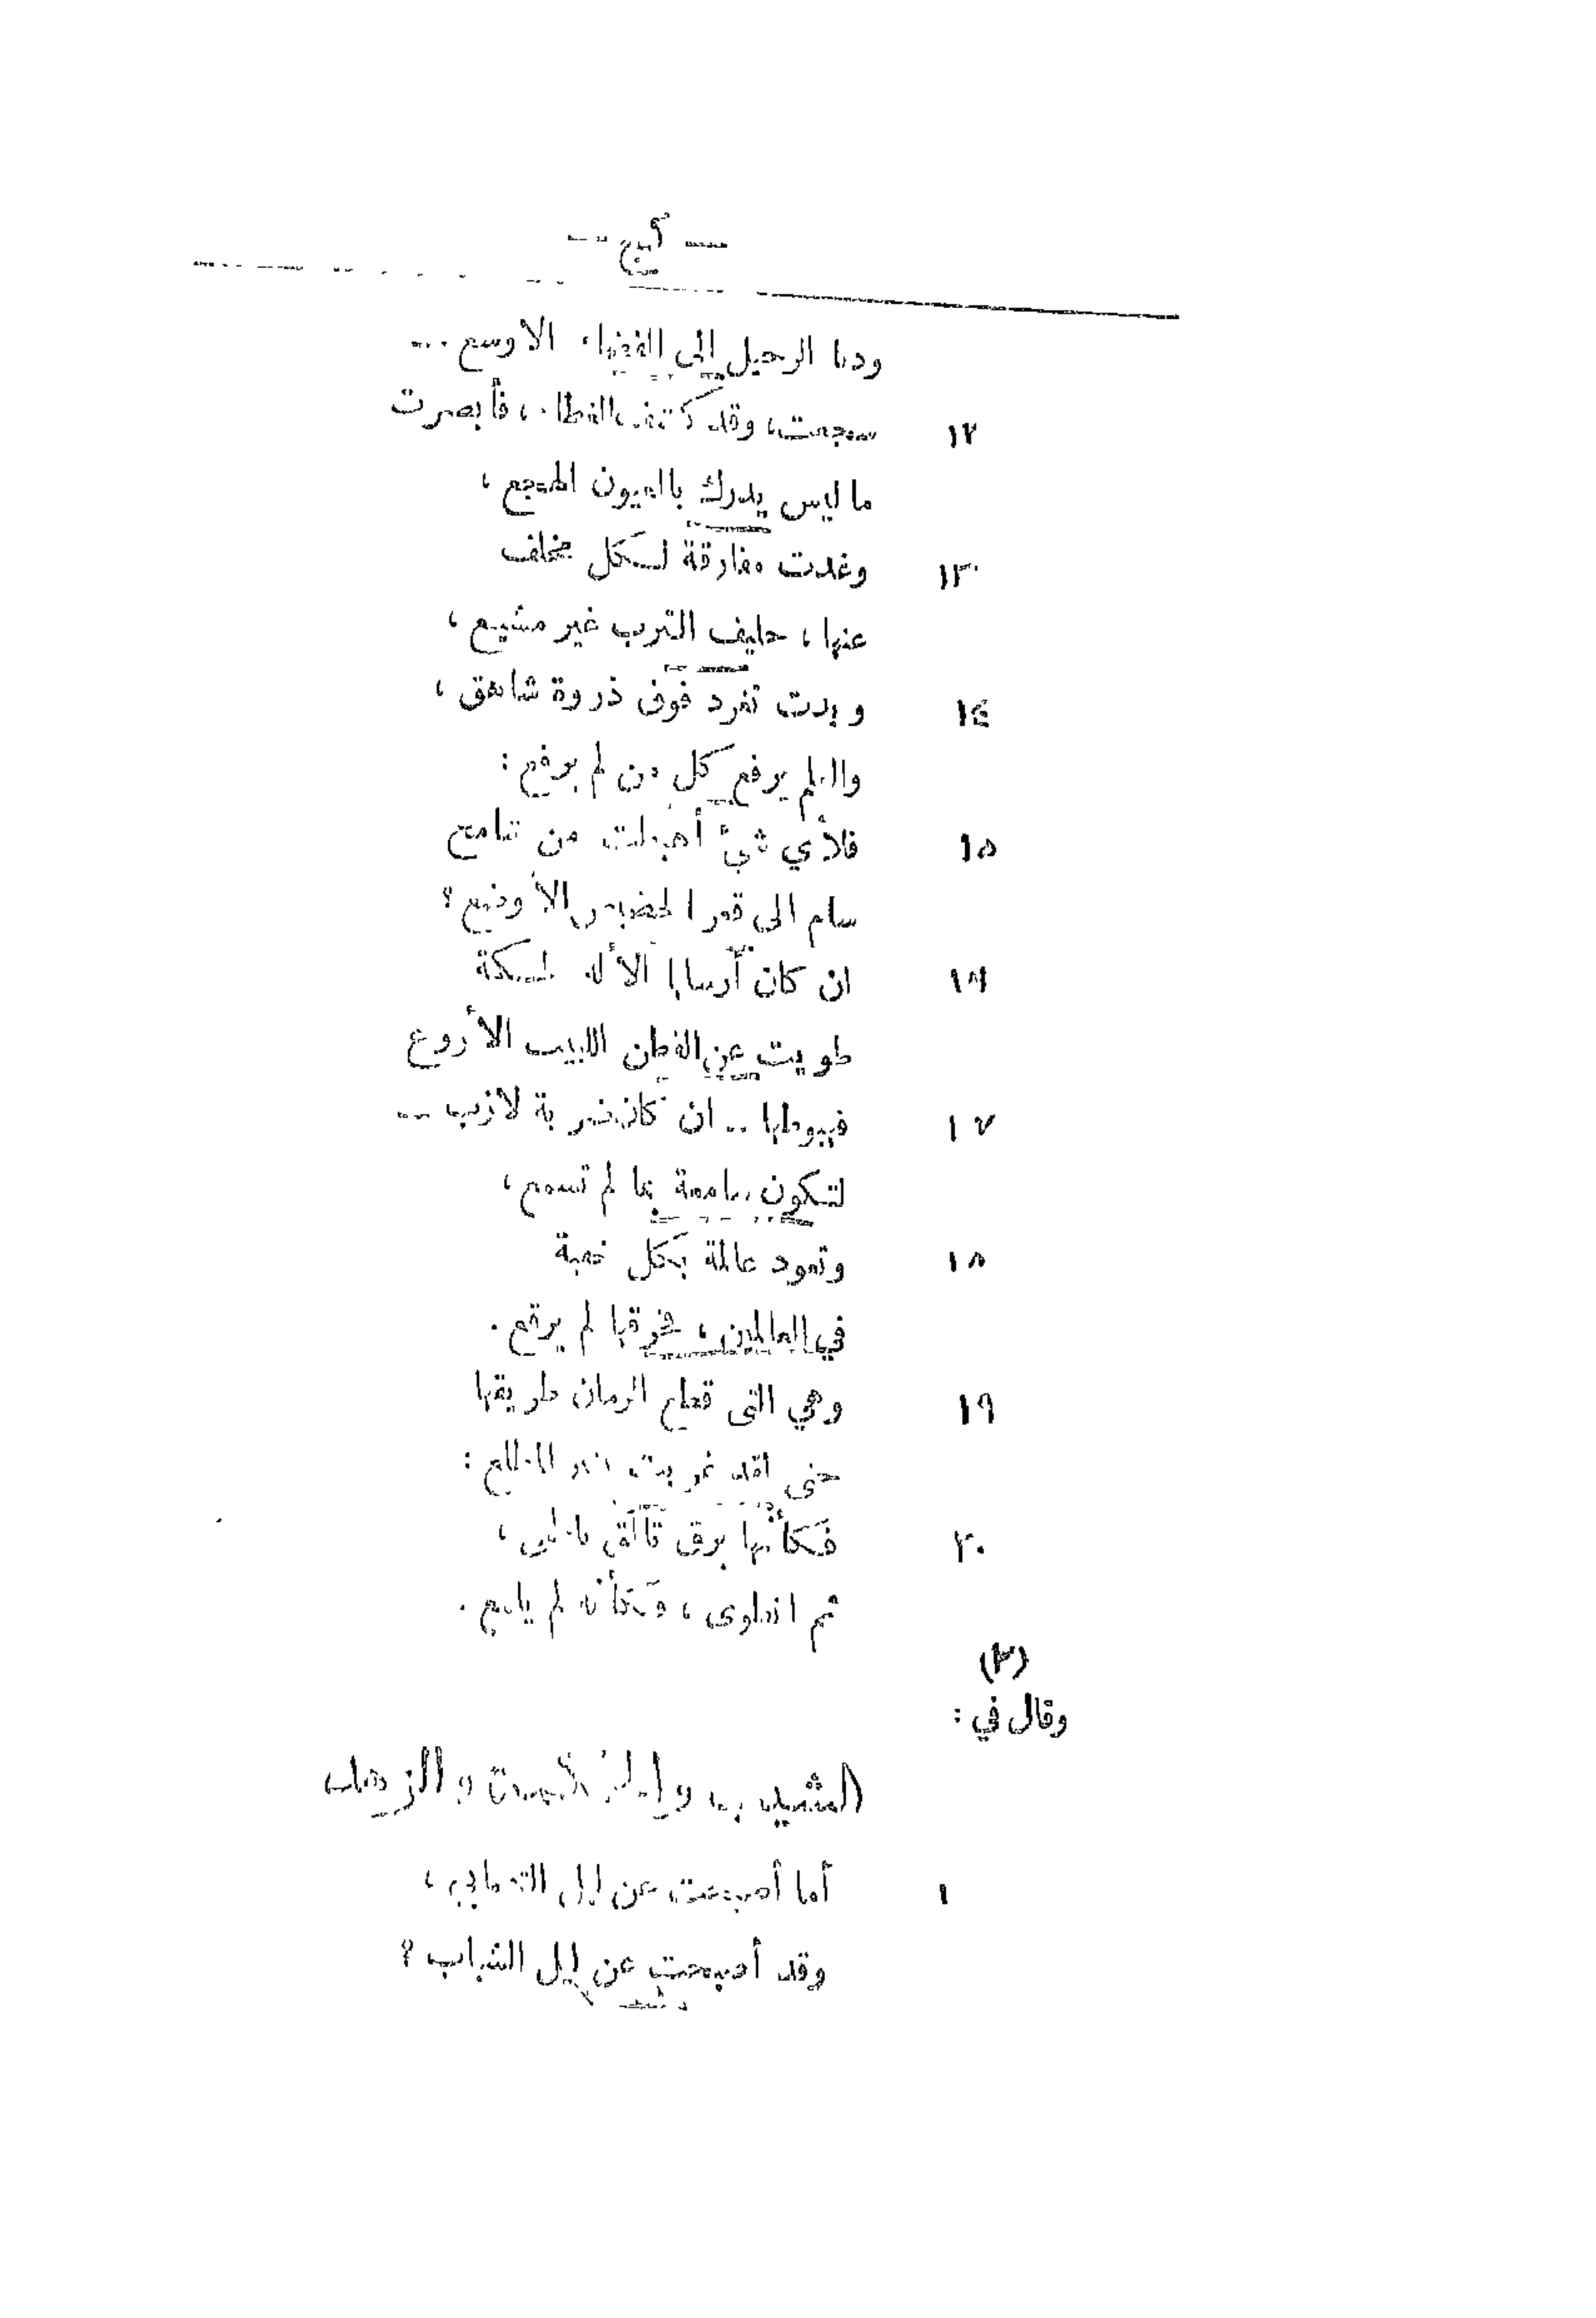 — كج —
ودنا الرحيل إلى الفضاء الاوسع ...
١٢ سجعت، وقد كشف الغطاء، فأبصرت
ما ليس يدرك بالعيون الهجع،
١٣ وغدت مفارقة لكل مخلف
عنها، حليف الترب غير مشيع،
١٤ وبدت تغرد فوق ذروة شاهق،
والعلم يرفع كل من لم يرفع:
١٥ فلأي شيء أهبطت من شامخ
سام الى قعر الحضيض الأوضع؟
١٦ ان كان أرسلها الأله لحكمة
طويت عن الفطن اللبيب الأروع
١٧ فهبوطها -- ان كان ضربة لازب --
لتكون سامعة بما لم تسمع،
١٨ وتعود عالمة بكل خفية
في العالمين، فخرقها لم يرقع.
١٩ وهي التي قطع الزمان طريقها
حتى لقد غربت بغير المطلع:
٢٠ فكأنها برق تألق بالحمى،
ثم انطوى، فكأنه لم يلمع.
(٢)
وقال في:
الشيب والحكمة والزهد
١ أما أصبحت عن ليل التصابي،
وقد أصبحت عن ليل الشباب؟